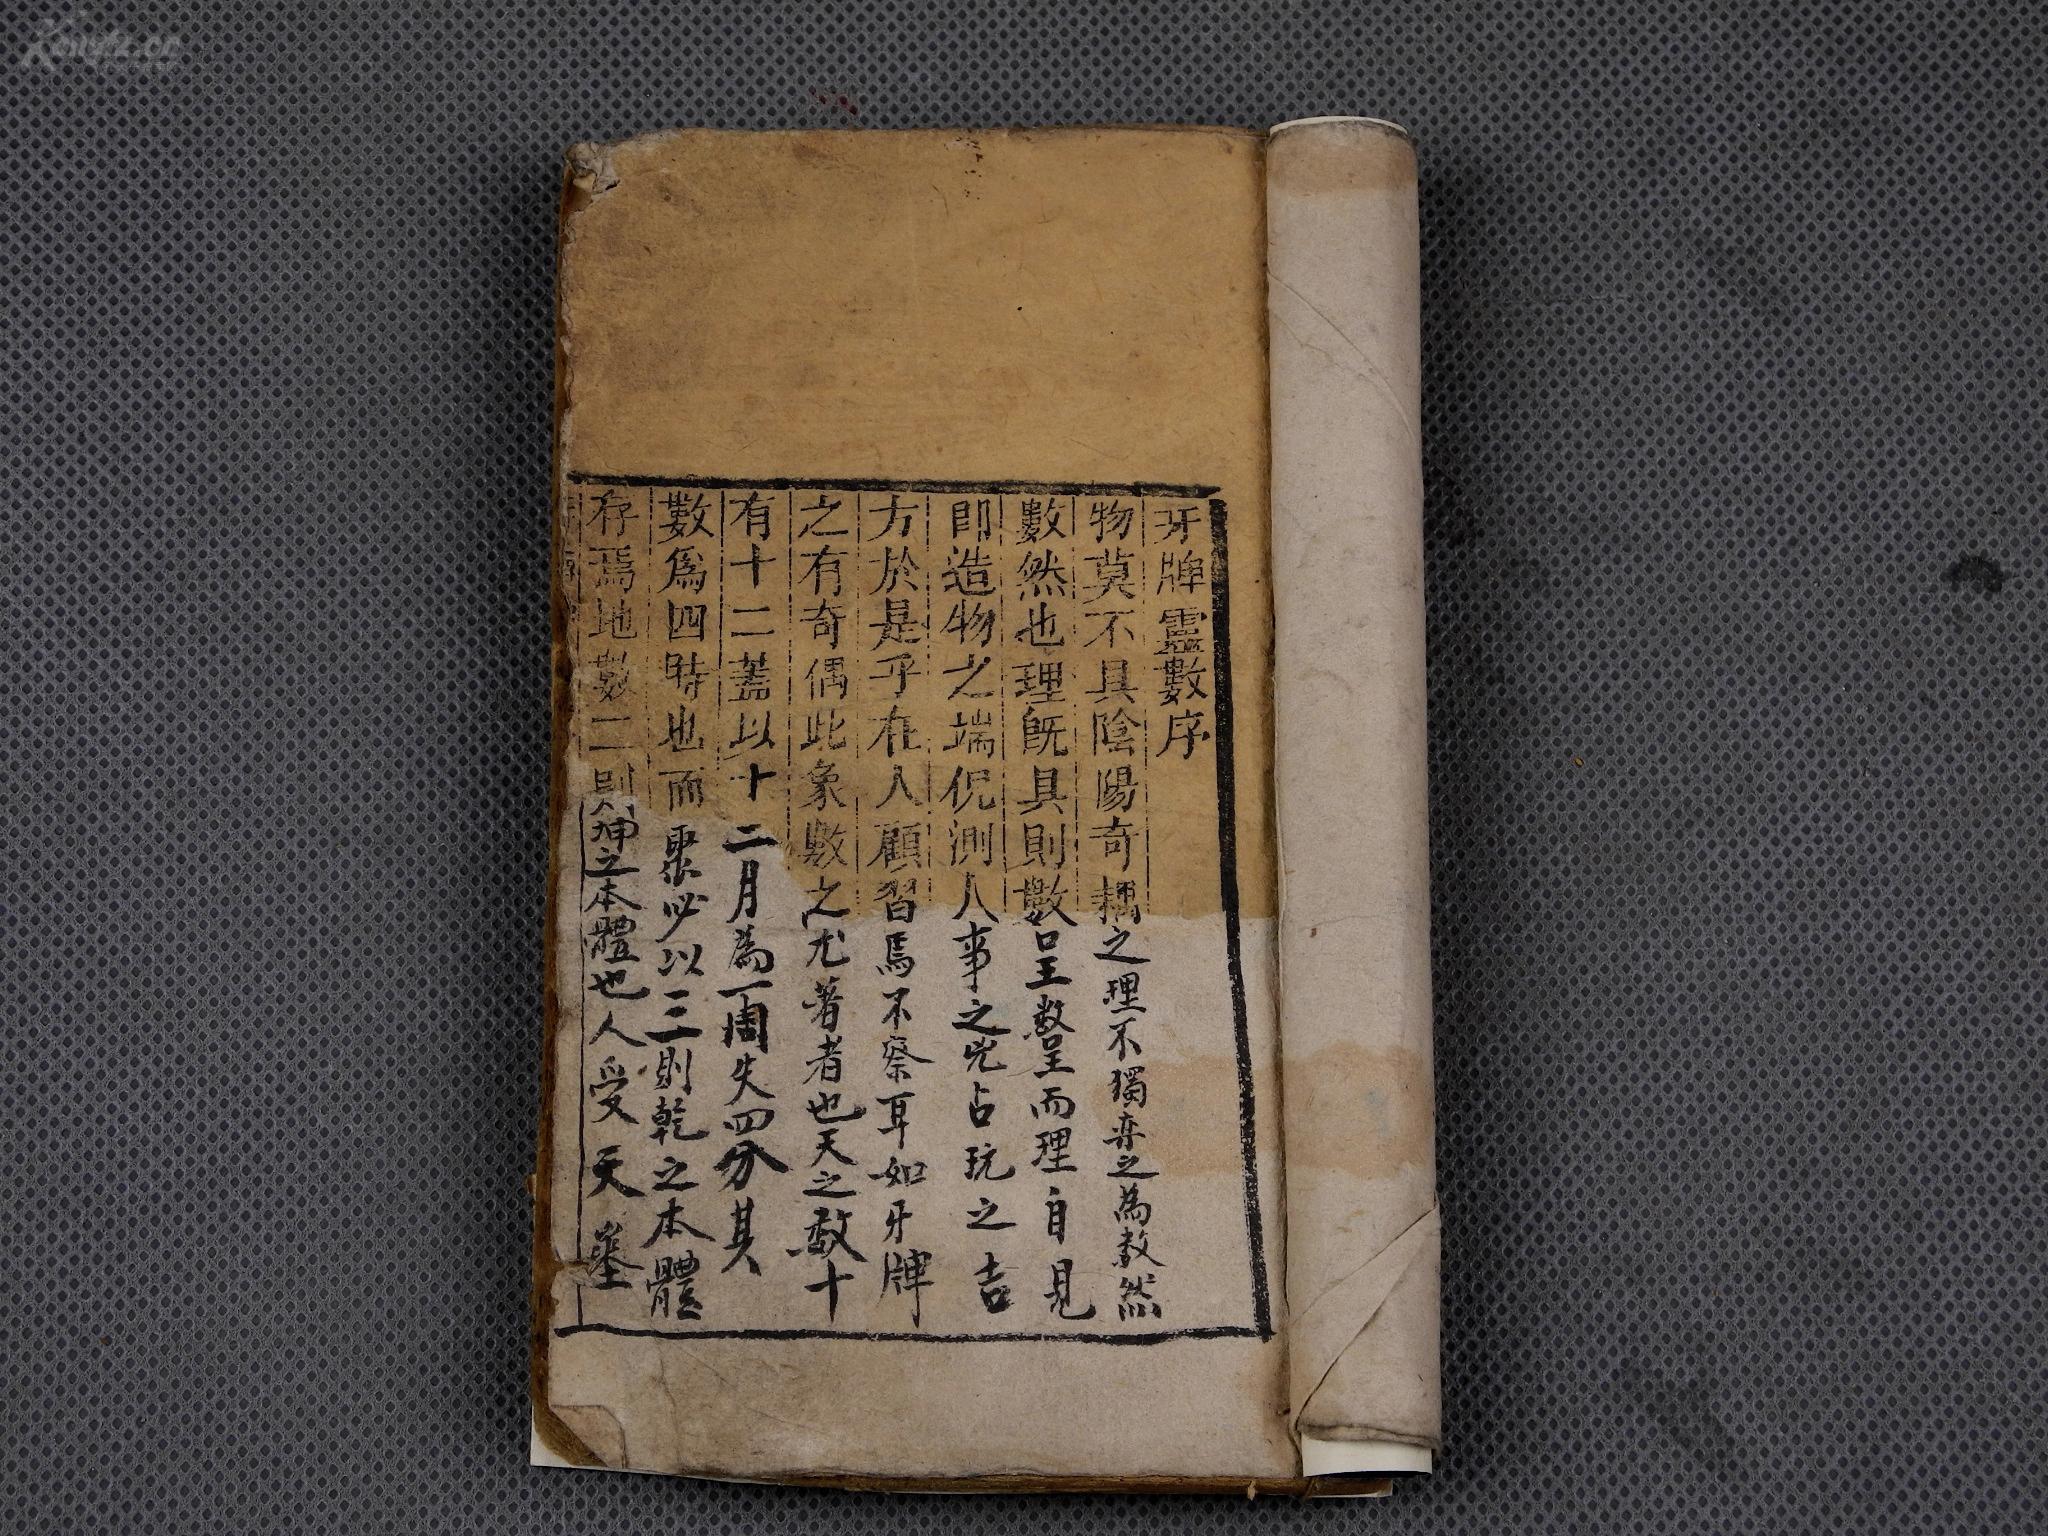 牙牌靈數序
物莫不具陰陽奇耦之理不獨弈之為数然
數然也理旣具則數呈数呈而理自見
卽造物之端倪測人事之兆占玩之吉
方於是乎在人顧習焉不察耳如牙牌
之有奇偶此象數之尤著者也天之数十
有十二蓋以十二月為一周矢四分其
數爲四時也而衆必以三則乾之本體
存焉地數二則坤之本體也人受天
Kongfz.cn